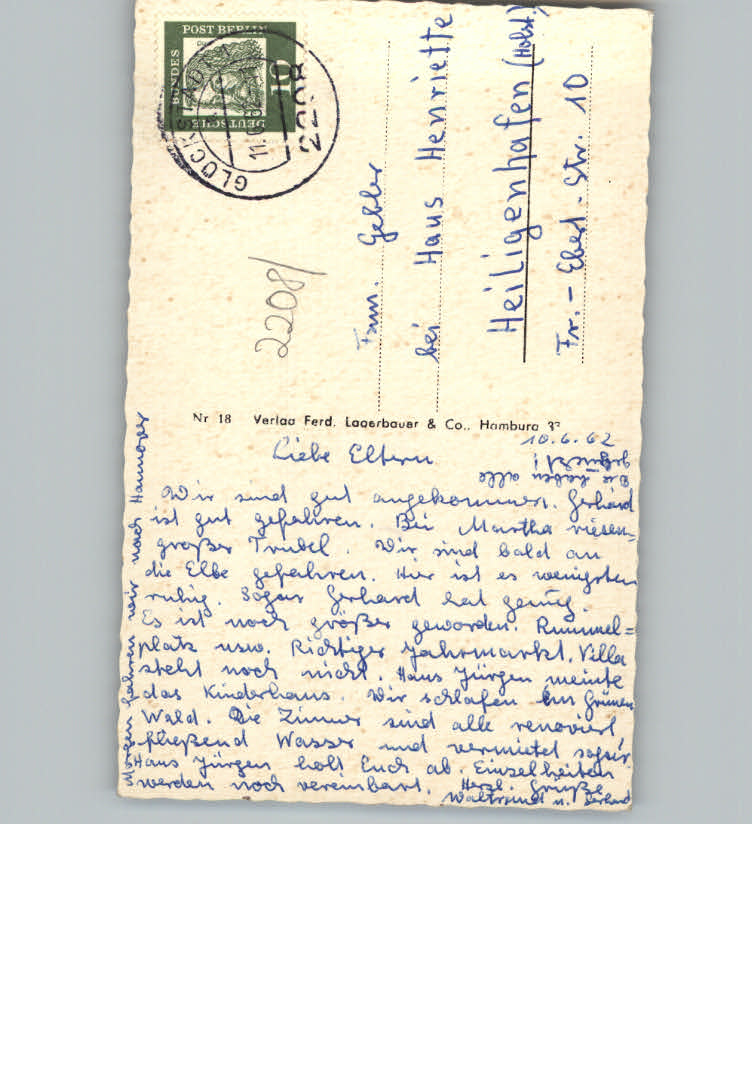 DEUTSCHE BUNDESPOST BERLIN
10
GLÜCKSTADT
2208
2208/
Fam. Gebler
bei Haus Henriette
Heiligenhafen (Holst.)
Fr.-Ebert-Str. 10
Nr 18 Verlag Ferd. Lagerbauer & Co., Hamburg
10.6.62
Liebe Eltern
Wir sind gut angekommen. Gerhard
ist gut gefahren. Bei Martha riesen=
großer Trubel. Wir sind bald an
die Elbe gefahren. Hier ist es wenigsten
ruhig. Sogar Gerhard hat genug.
Es ist noch größer geworden. Rummel=
platz usw. Richtiger Jahrmarkt. Villa
steht noch nicht. Hans Jürgen meinte
das Kinderhaus. Wir schlafen im Grünen
Wald. Die Zimmer sind alle renoviert
fließend Wasser und vermietet sogar
Hans Jürgen holt Euch ab. Einzelheiten
werden noch vereinbart. Herzl. Grüße
Waltraud u. Gerhard
Morgen fahren wir nach Hannover